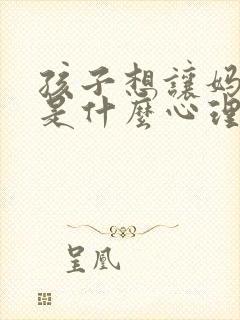 孩子想讓媽
是什麼心理
呈凰